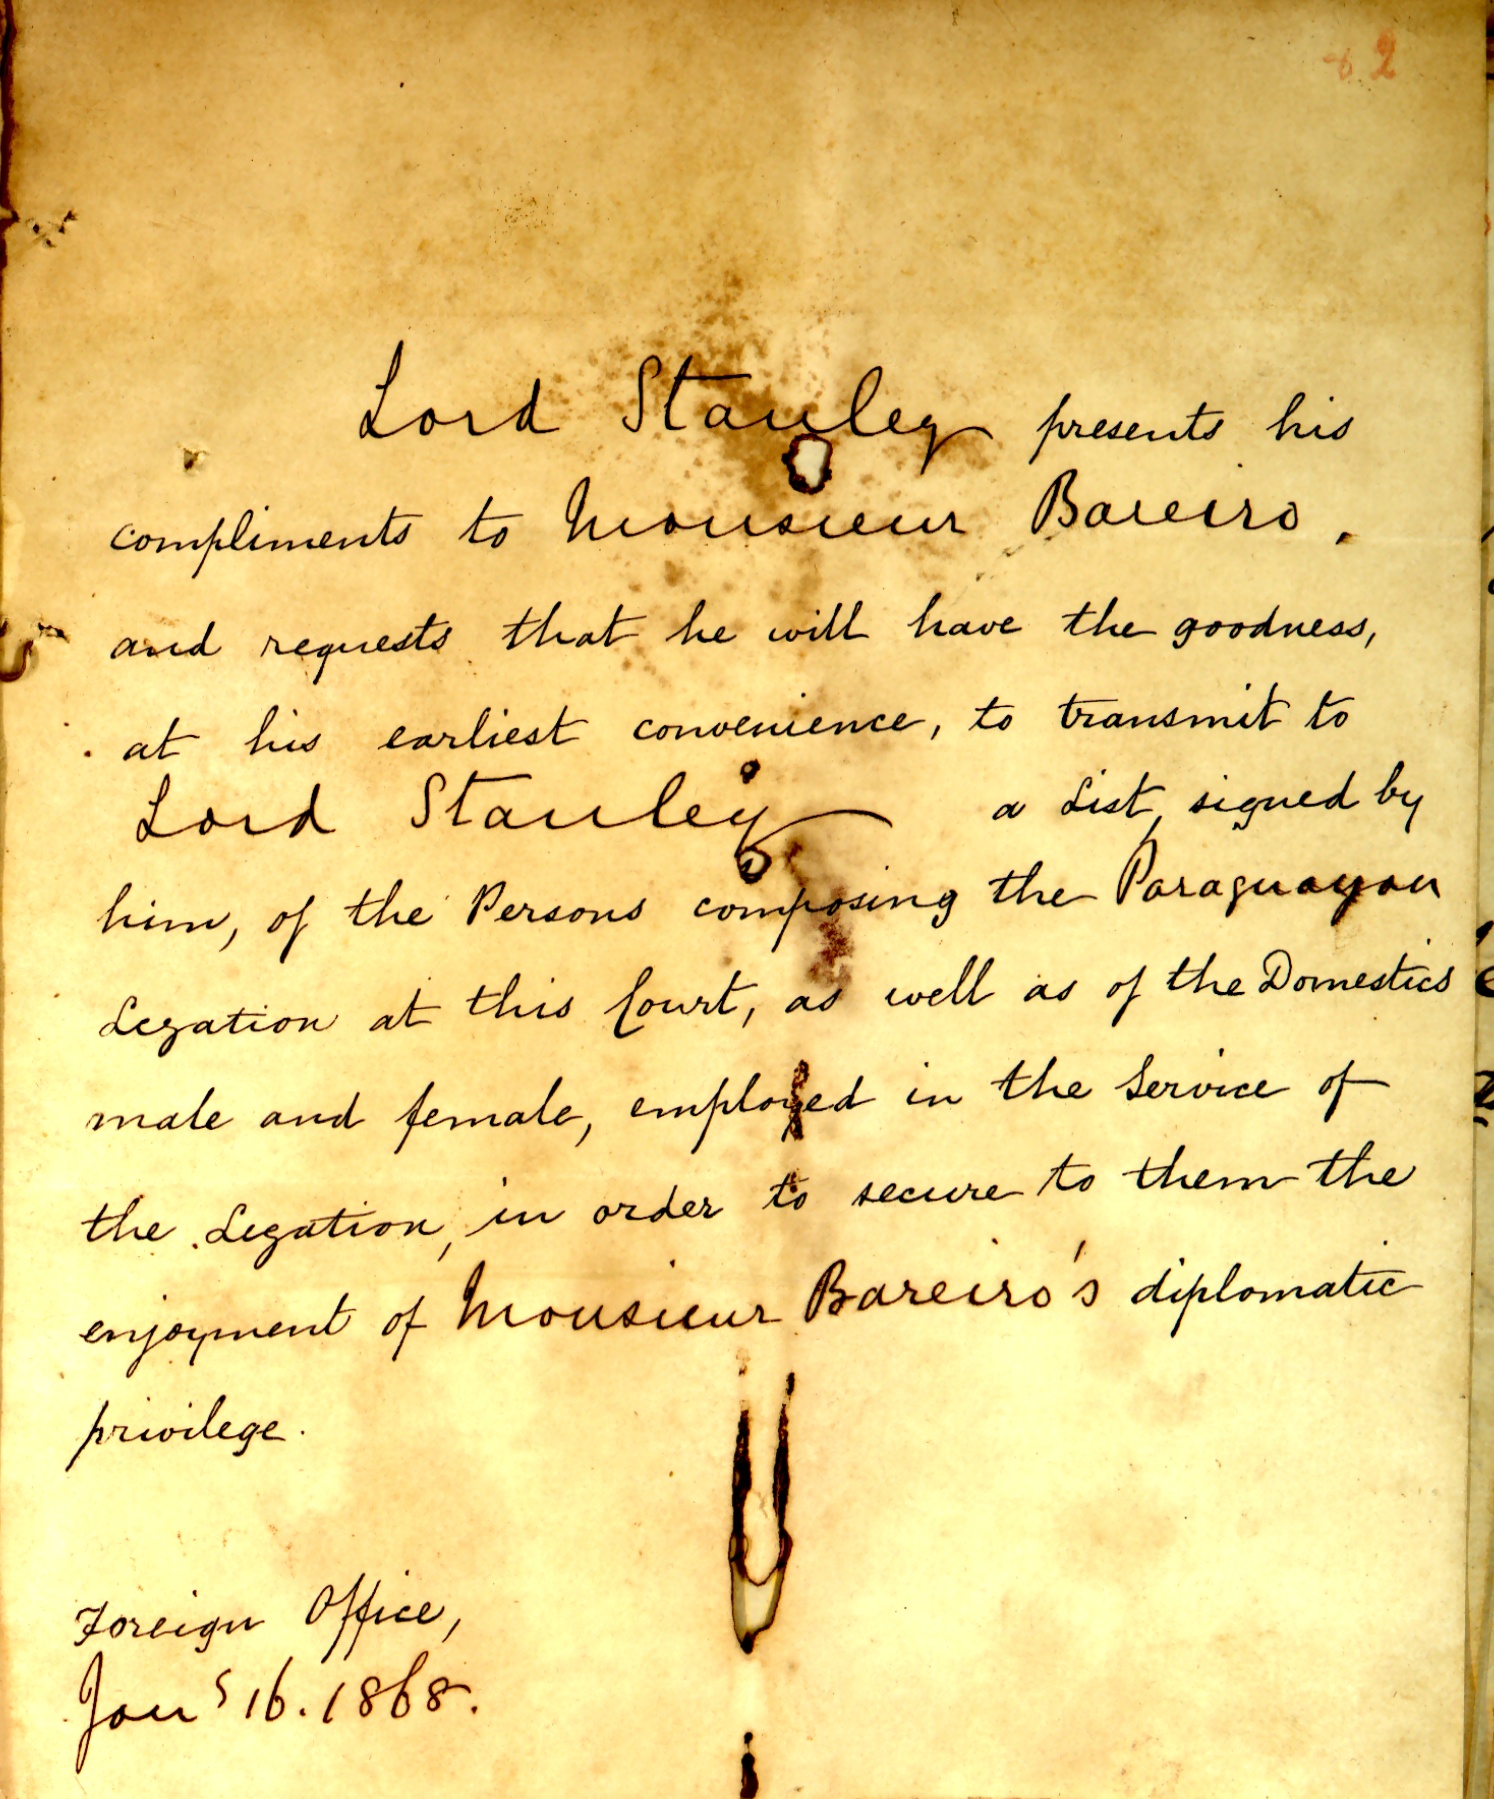 2
Lord Stanley presents his
compliments to Monsieur Bareiro,
and requests that he will have the goodness,
at his earliest convenience, to transmit to
Lord Stanley a List, signed by
him, of the Persons composing the Paraguayan
Legation at this Court, as well as of the Domestics
male and female, employed in the Service of
the Legation, in order to secure to them the
enjoyment of Monsieur Bareiro's diplomatic
privilege.
Foreign Office,
Jany 16. 1868.